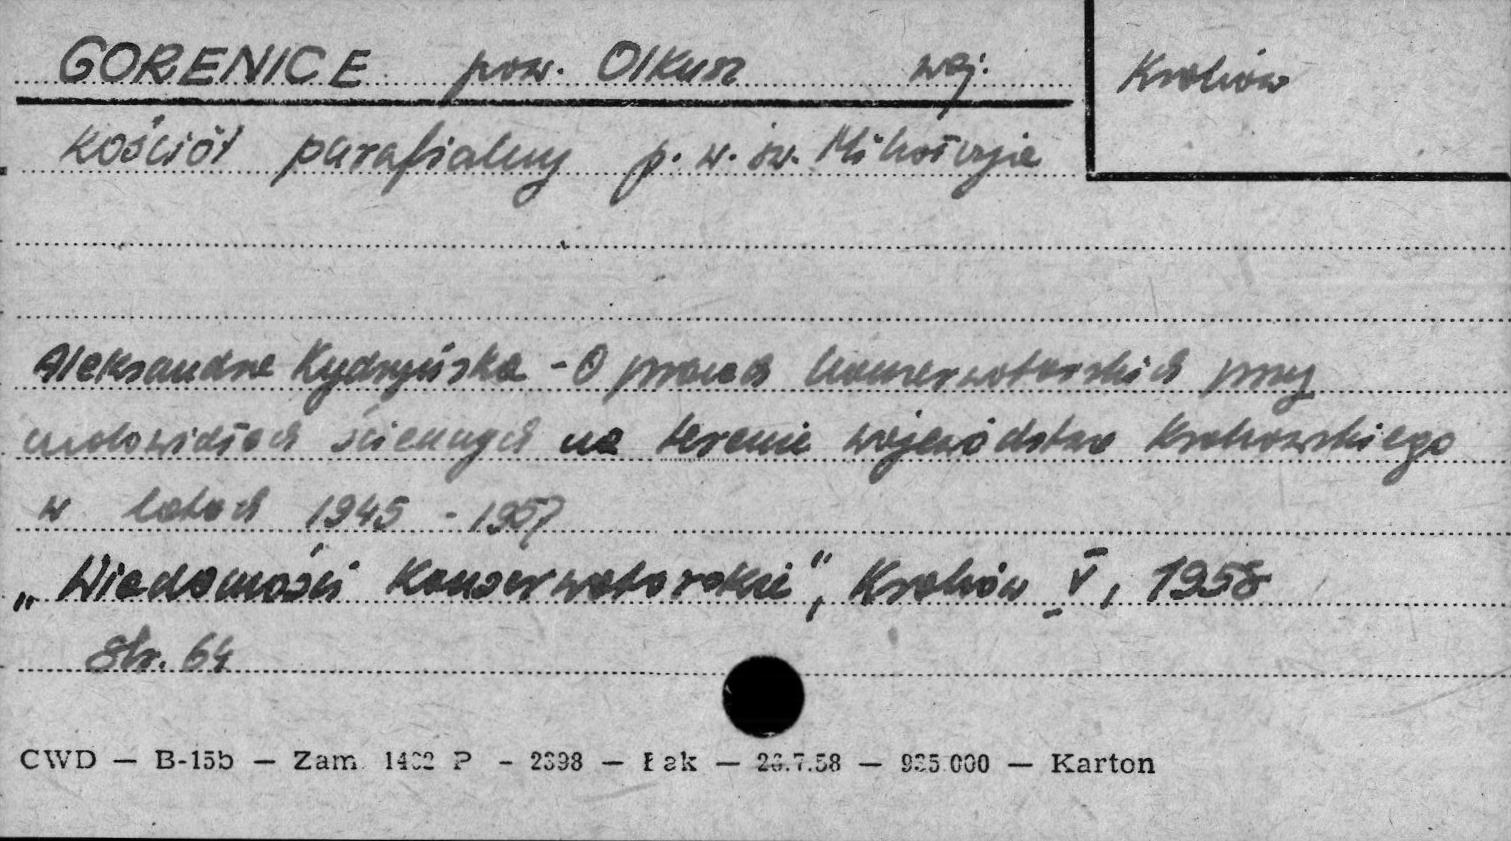 GORENICE pow. Olkusz woj. Kraków
Kościół parafialny p.w. św. Mikołaja
Aleksandra Kydryńska - O pracach konserwatorskich przy
malowidłach ściennych na terenie województwa krakowskiego
w latach 1945 - 1957
„Wiadomości Konserwatorskie", Kraków V, 1958
Str. 64
CWD — B-15b — Zam. P - 2398 — — .7.58 — 000 — Karton